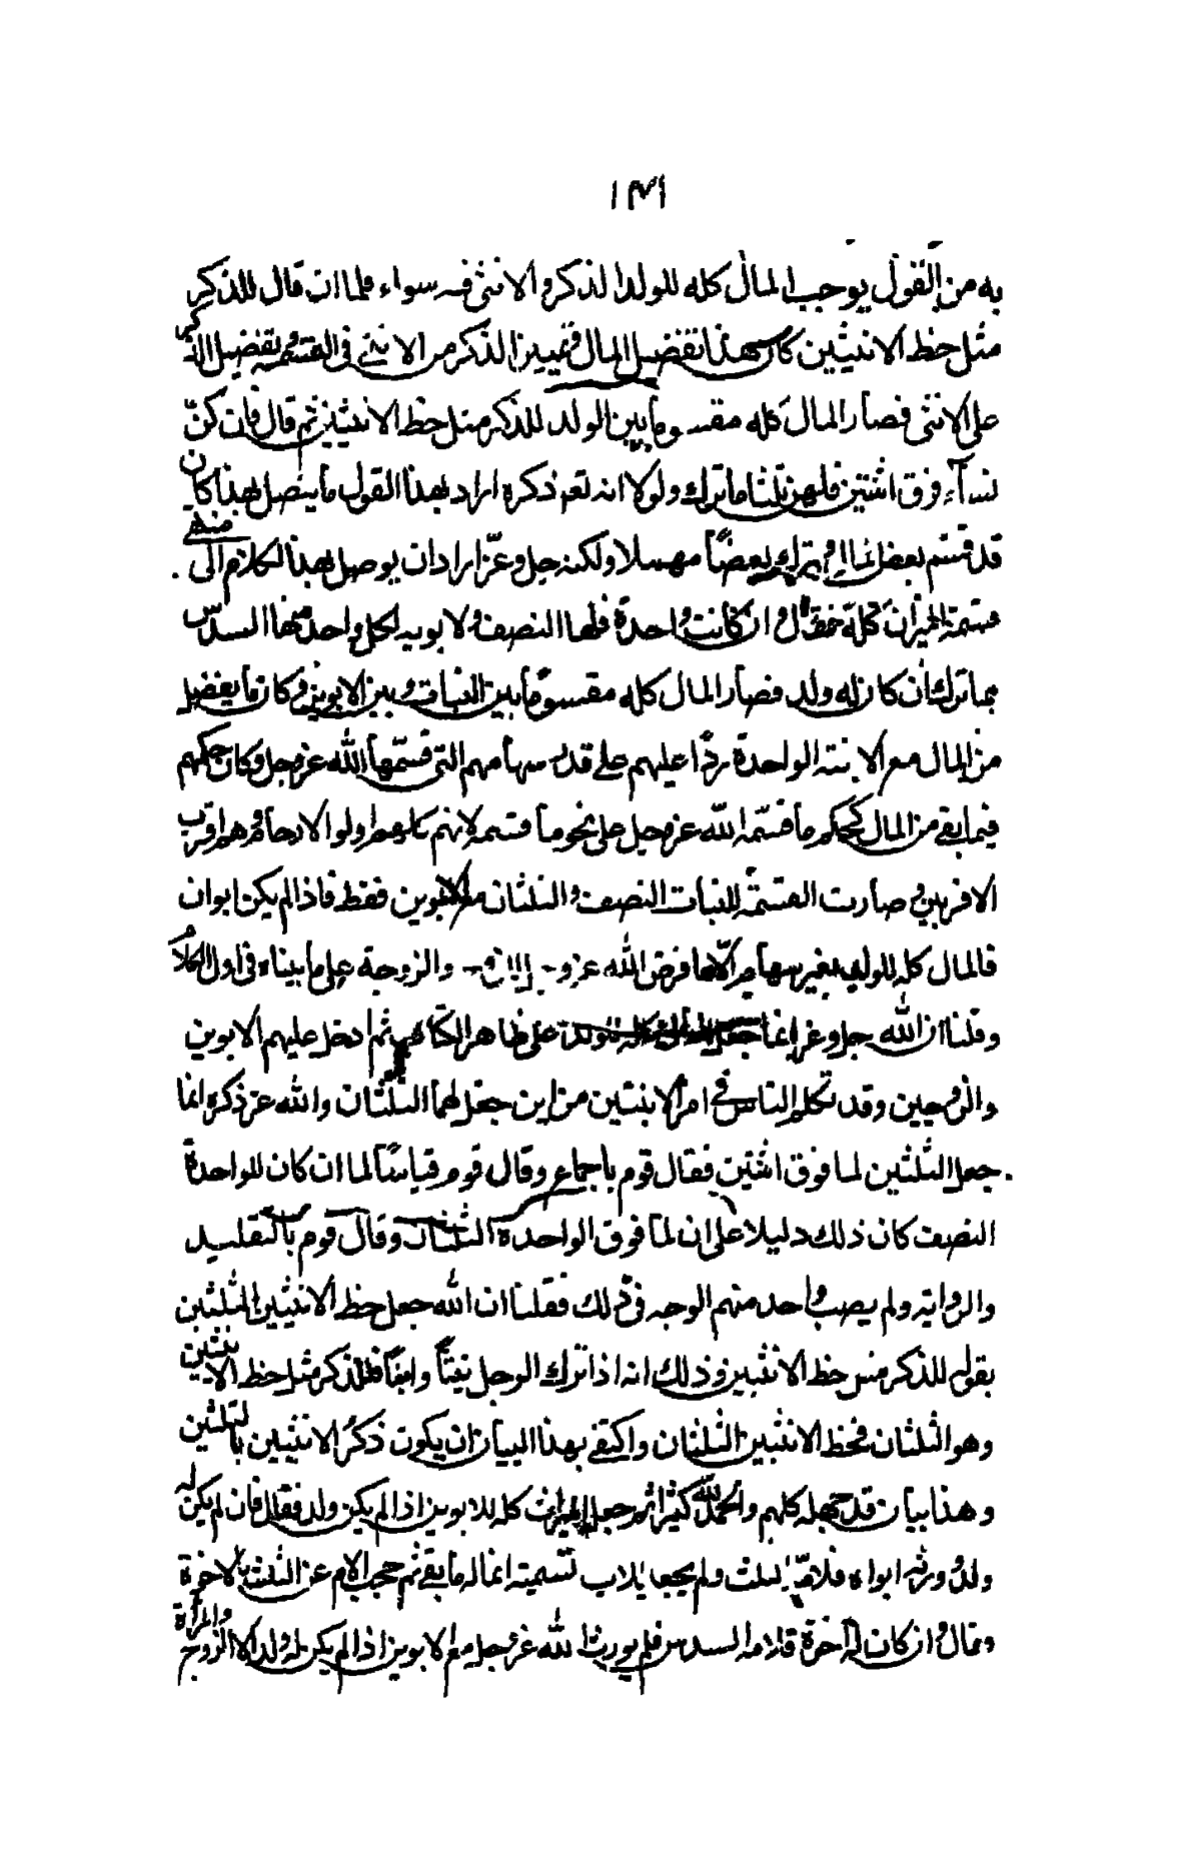 ١٣٩
به من القول يوجب المال كله للولد الذكر والانثى فيه سواء فلما ان قال للذكر
مثل حظ الانثيين كان هذا تفضيل المال وتمييز الذكر من الانثى فى القسمة وتفضيل الذكر
على الانثى فصار المال كله مقسوما بين الولد للذكر مثل حظ الانثيين ثم قال فان كنّ
نسآء فوق اثنتين فلهن ثلثا ما ترك ولولا انه تعم ذكره اراد بهذا القول ما يتصل بهذا كان
قد قسم بعض المال وترك بعضاً مهملا ولكنه جل وعزّ اراد ان يوصل بهذا الكلام الى منتهى
قسمة الميراث كلّه فقال وان كانت واحدة فلها النصف ولابويه لكل واحد منهما السدس
مما ترك ان كان له ولد فصار المال كله مقسوماً بين البنات وبين الابوين وكان ما يفضل
من المال مع الابنة الواحدة ردّاً عليهم على قدر سهامهم التى قسّمها الله عز وجل وكان حكمهم
فيما بقى من المال كحكم ما قسّمه الله عز وجل على نحو ما قسمه لانهم كلهم اولوا الارحام وهم اقرب
الاقربين وصارت القسمة للبنات النصف والثلثان مع الابوين فقط فاذا لم يكن ابوان
فالمال كله للولد بغير سهام الّا ما فرض الله عز و‍ للازواج والزوجة على ما بيناه فى اول الكلام
وقلنا ان الله جل وعز انما جعل المال كله للولد على ظاهر الكتاب ثم ادخل عليهم الابوين
والزوجين وقد تكلم الناس فى امر الابنتين من اين جعل لهما الثلثان والله عز ذكره انما
جعل الثلثين لما فوق اثنتين فقال قوم باجماع وقال قوم قياساً لما ان كان للواحدة
النصف كان ذلك دليلا على ان لما فوق الواحدة الثلثان وقال قوم بالتقليد
والرواية ولم يصب واحد منهم الوجه فى ذلك فقلنا ان الله جعل حظ الانثيين الثلثين
بقوله للذكر مثل حظ الانثيين وذلك انه اذا ترك الرجل بنتاً وابناً فللذكر مثل حظ الانثيين
وهو الثلثان فحظ الانثيين الثلثان واكتفى بهذا البيان ان يكون ذكر الانثيين بالثلثين
وهذا بيان قد جهله كلهم والحمد لله كثيرا ثم جعل الميراث كله للابوين اذا لم يكن ولد فقال فان لم يكن له
ولد وورثه ابواه فلامّه الثلث ولم يجعل للاب تسمية انما له ما بقى ثم حجب الام عن الثلث بالاخوة
وقال وان كان له اخوة فلامه السدس فلم يورث الله عز وجل مع الابوين اذا لم يكن له ولد الا الزوج والمرأة